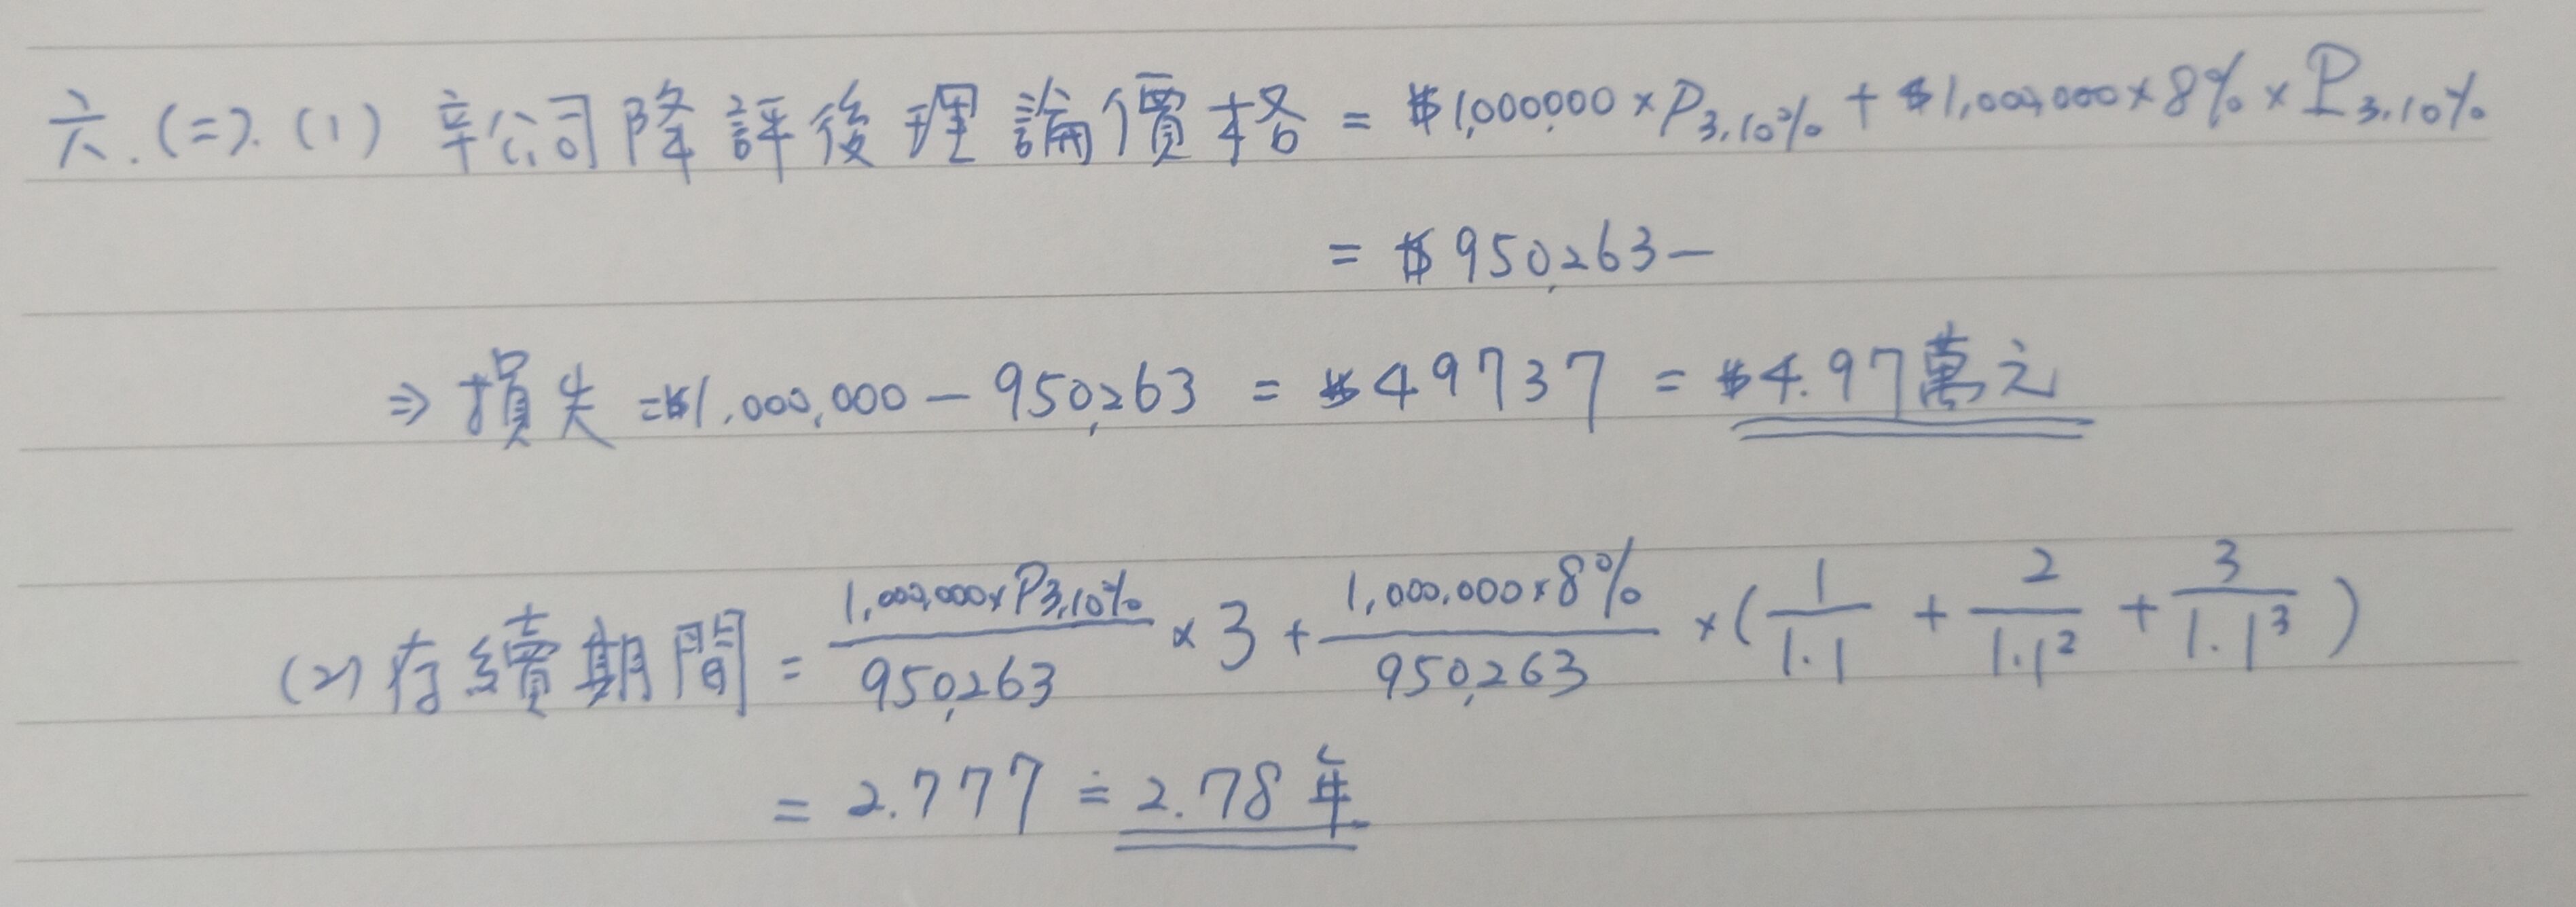 六.(二).(1) 辛公司降評後理論價格 = $1,000,000 × P3,10% + $1,000,000 × 8% × P3,10%
= $950,263-
⇒ 損失 = $1,000,000 - 950,263 = $49737 = $4.97萬元
(2) 存續期間 = 1,000,000×P3,10% / 950,263 × 3 + 1,000,000×8% / 950,263 × ( 1/1.1 + 2/1.1² + 3/1.1³ )
= 2.777 ≒ 2.78年